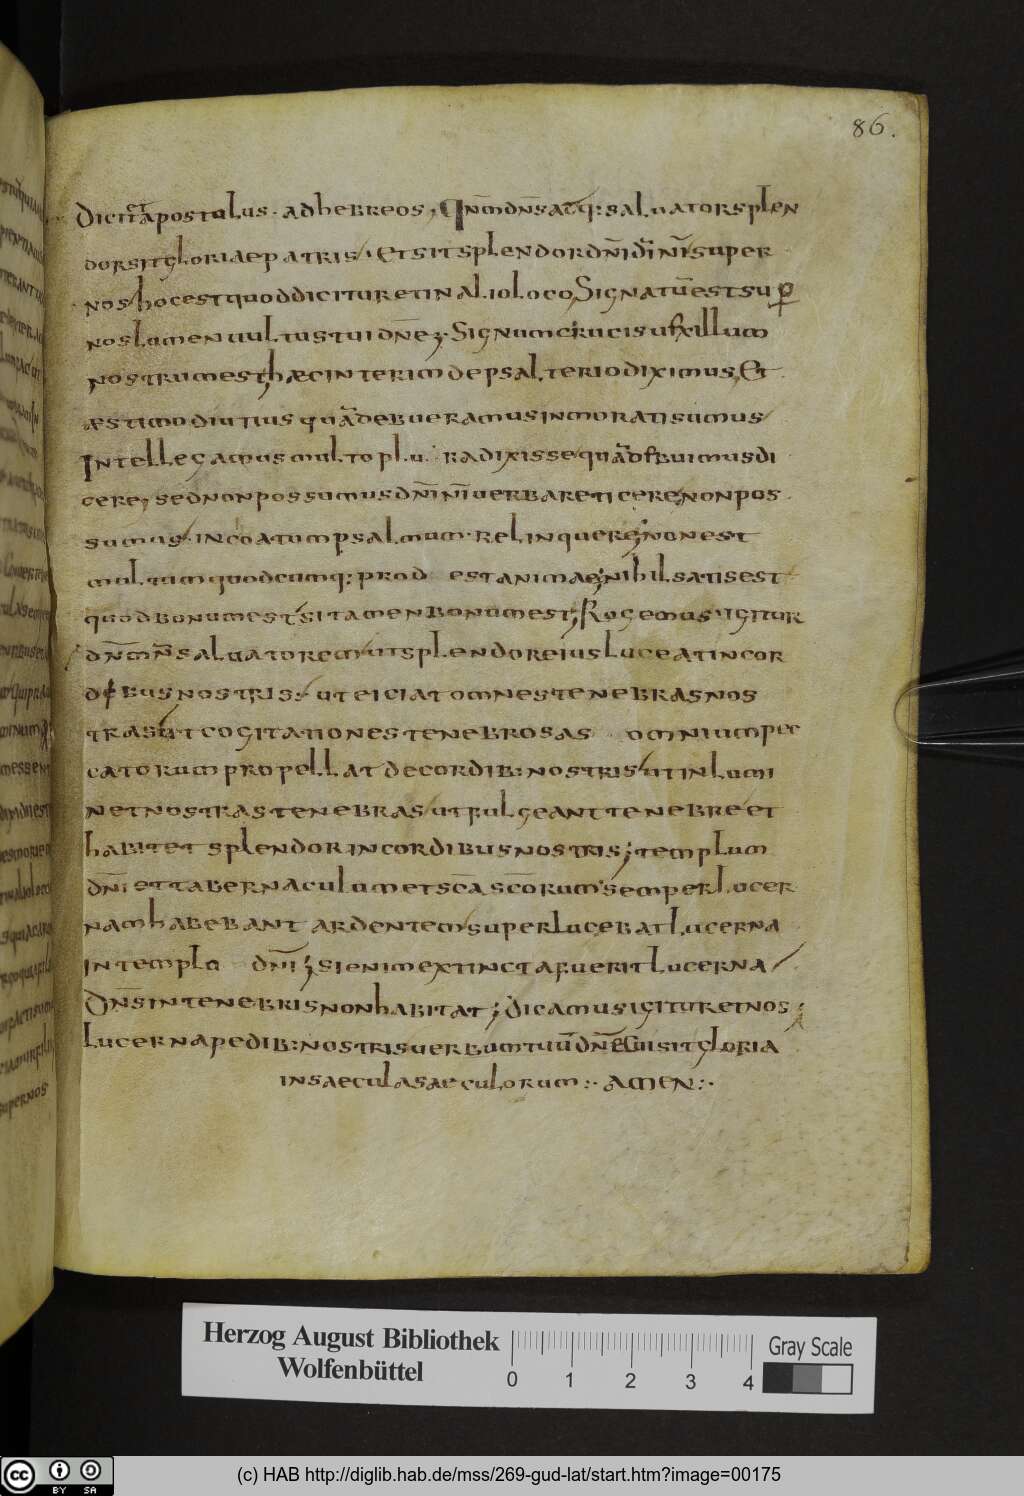 86.
Dicit & apostolus · ad hebreos, Qnm̄ dn̄s atq: saluator splen
dor sit gloriae patris · Et sit splendor dn̄i di nr̄i super
nos hoc est quod dicitur et in alio loco, Signatū est sup
nos lumen uultus tui dn̄e; Signum crucis uexillum
nostrum est, haec interim de psalterio diximus, Et
aestimo diutius quā debueramus inmorati sumus
Intellegamus multo plu radixisse quā debuimus di
cere, sed non possumus dn̄i nr̄i uerba reticere, non pos
sumus incoatum psalmum · relinquere, non est
multum quodcumq; prod est animae, nihil satis est
quod bonum est, si tamen bonum est, Rogemus igitur
dn̄m nr̄m saluatorem ut splendor eius luceat in cor
dibus nostris ut eiciat omnes tenebras nos
tras, ut cogitationes tenebrosas omnium pec
catorum propellat de cordib: nostris, ut inlumi
net nostras tenebras, ut fulgeant tenebre et
habitet splendor in cordibus nostris; templum
dn̄i et tabernaculum et sc̄a sc̄orum semper lucer
nam habebant ardentem, super lucebat lucerna
in templo dn̄i; si enim extincta fuerit lucerna
Dn̄s in tenebris non habitat; dicamus igitur et nos;
Lucerna pedib: nostris uerbum tuū dn̄e Cui sit gloria
in saecula saeculorum :· AMEN :·
Herzog August Bibliothek
Wolfenbüttel
0 1 2 3 4
Gray Scale
cc BY SA
(c) HAB http://diglib.hab.de/mss/269-gud-lat/start.htm?image=00175